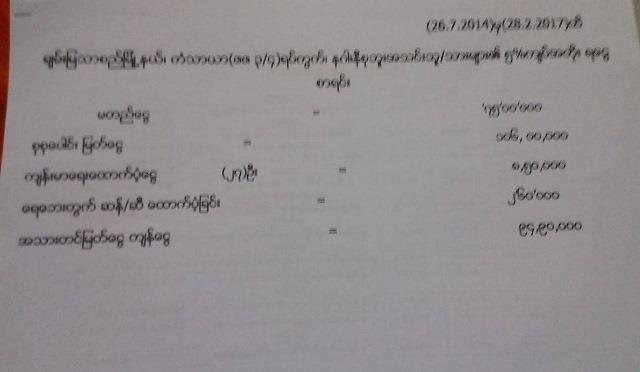 (26.7.2014)မှ(28.2.2017)ထိ
ချမ်းမြသာစည်မြို့နယ်၊ ကံသာယာ(၈၈ ၃/၄)ရပ်ကွက်၊ နဂါးနီစုဘူးအသင်းသူ/သားများ၏
စာရင်း
မတည်ငွေ = ၇၅,၀၀,၀၀၀
စုစုပေါင်း မြတ်ငွေ = ၁၀၆, ၀၀,၀၀၀
ကျန်းမာရေးထောက်ပံ့ငွေ (၂၇)ဦး = ၈,၅၀,၀၀၀
ရေဘေးတွက် ဆန်/ဆီ ထောက်ပံ့ခြင်း = ၂၆၀,၀၀၀
အသားတင်မြတ်ငွေ ကျန်ငွေ = ၉၄,၉၀,၀၀၀